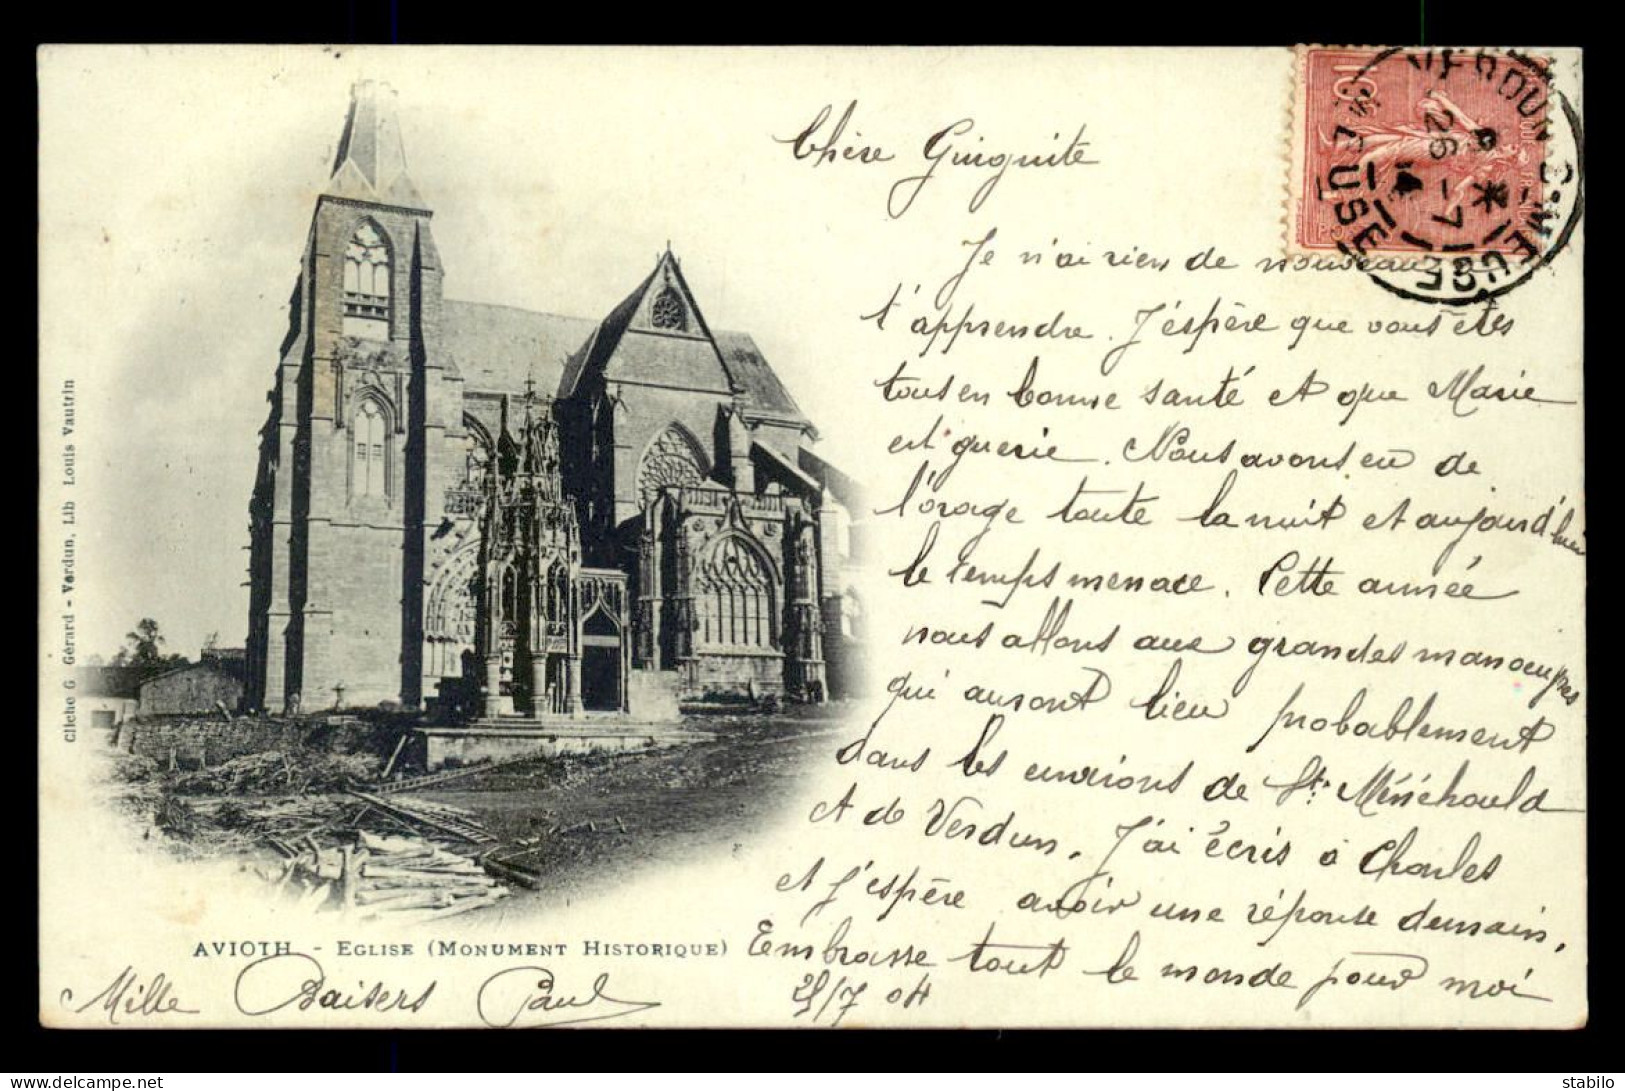 Chère Guinguite
Je n'ai rien de nouveau à
t'apprendre. J'éspère que vous êtes
tous en bonne santé et que Marie
est guerie. Nous avons eu de
l'orage toute la nuit et aujourd'hui
le temps menace. Cette année
nous allons aux grandes manoeuvres
qui auront lieu probablement
dans les environs de Ste Ménéhould
et de Verdun. J'ai écris à Charles
et j'espère avoir une réponse demain.
Embrasse tout le monde pour moi
25/7 04
Mille Baisers Paul
AVIOTH - EGLISE (MONUMENT HISTORIQUE)
Cliché G Gérard - Verdun, Lib Louis Vautrin
VERDUN-S-MEUSE
26-7
04
MEUSE
10
stabilo